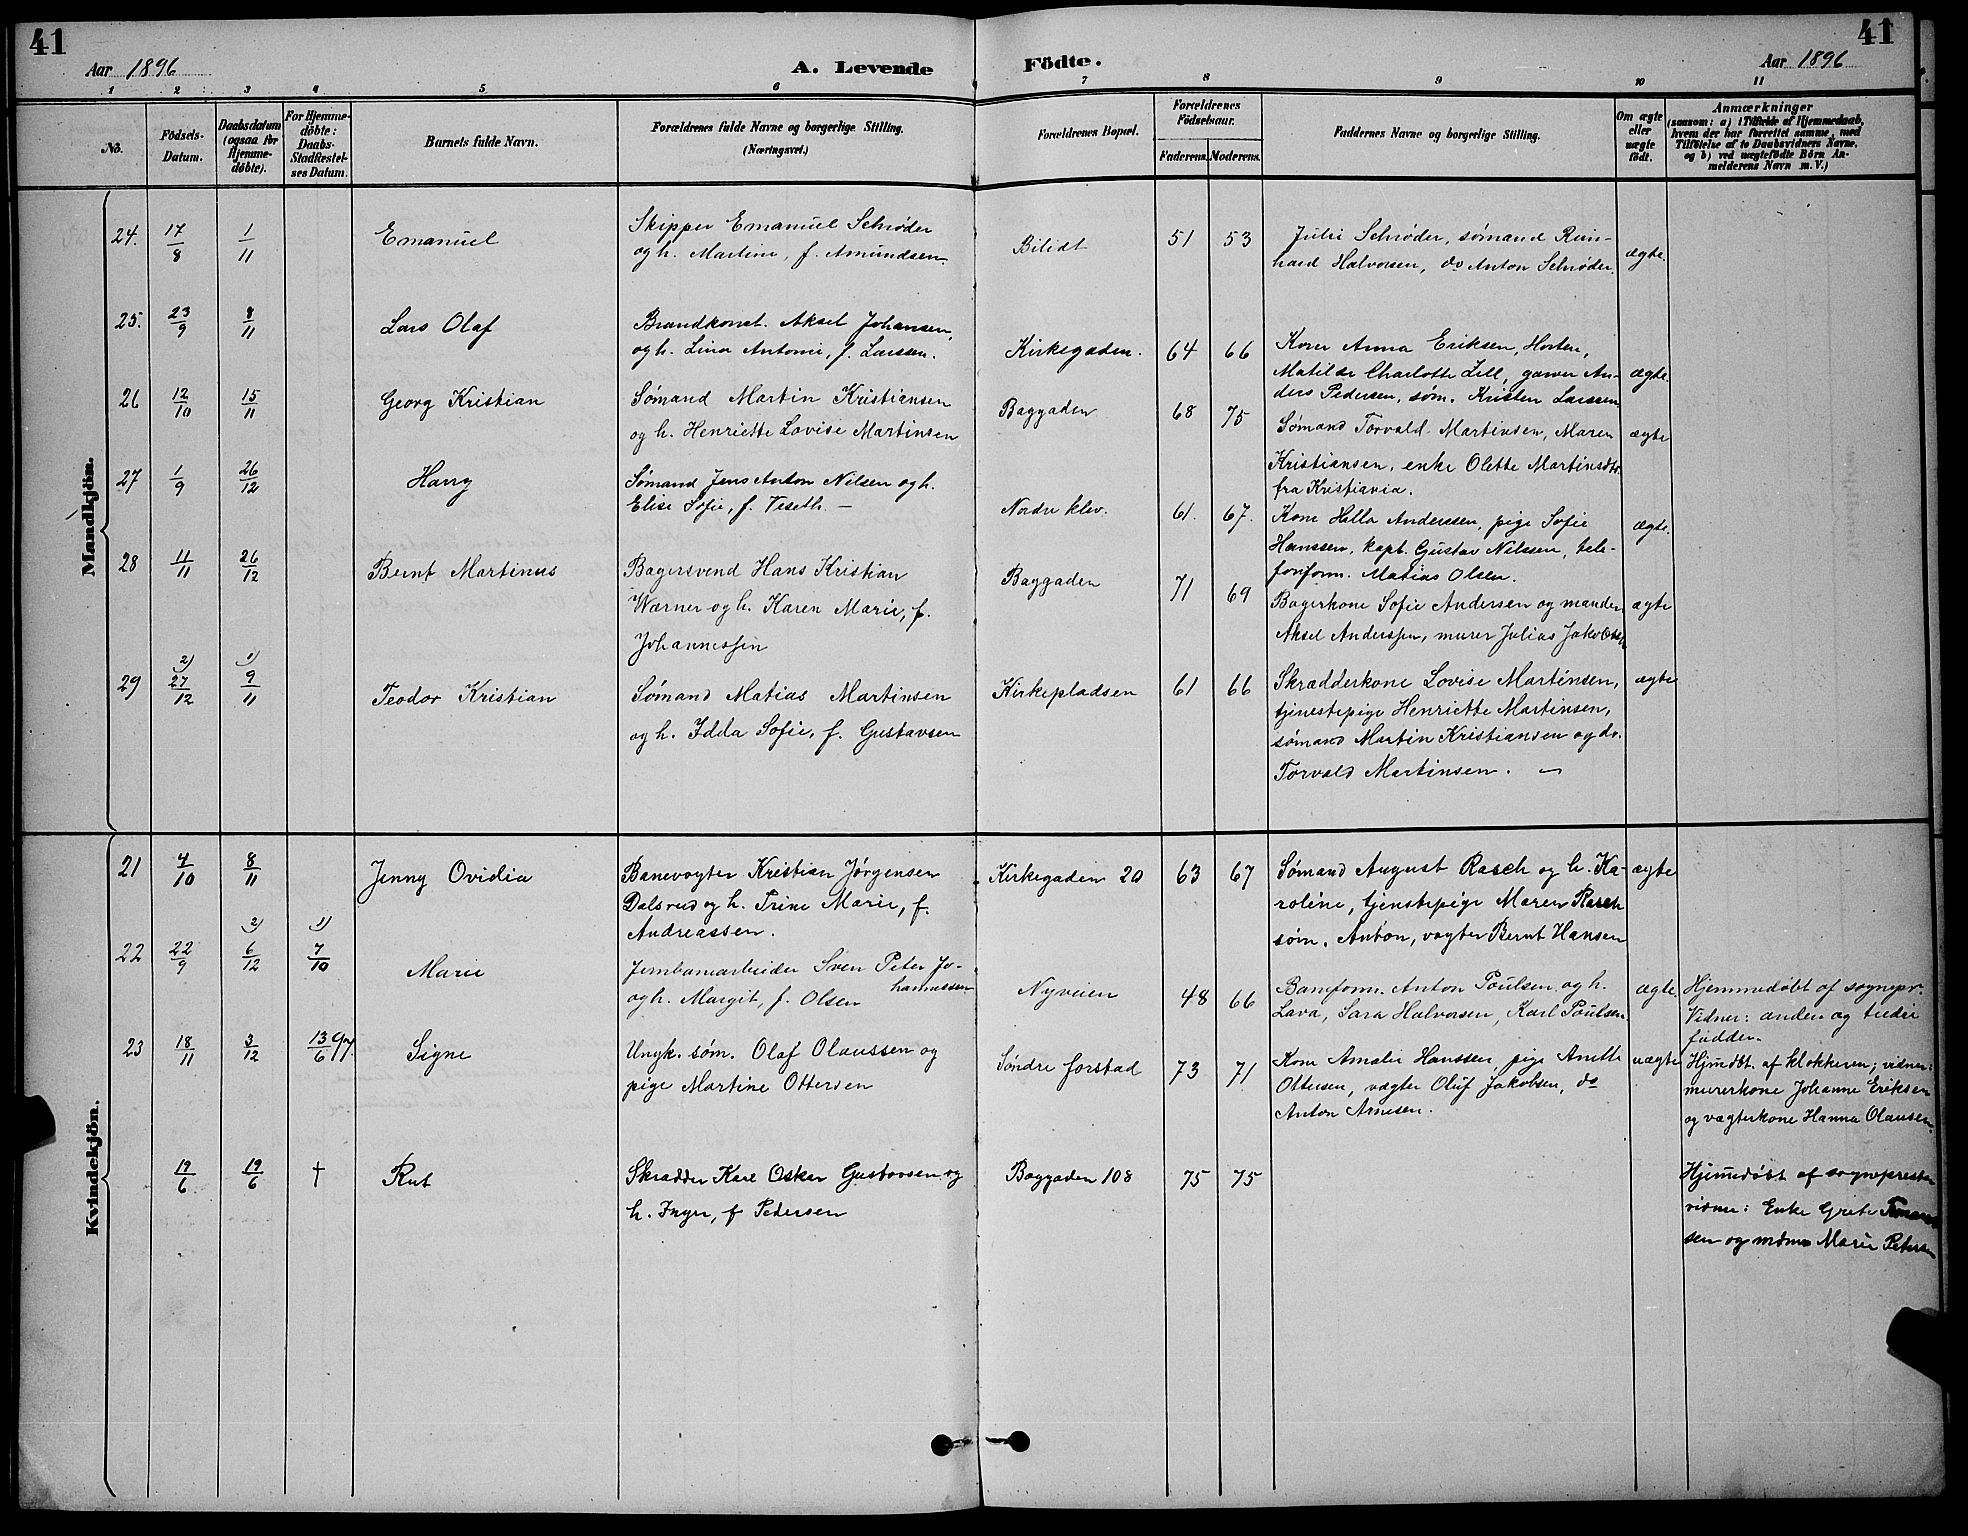 41
41
Aar 1896
A. Levende Födte.
Aar 1896
1 2 3 4 5 6 7 8 9 10 11
No.
Födsels-
Datum.
Daabsdatum
(ogsaa for
Hjemme-
döbte).
For Hjemme-
döbte:
Daabs-
Stadfæstel-
ses Datum.
Barnets fulde Navn.
Forældrenes fulde Navne og borgerlige Stilling.
(Næringsvei.)
Forældrenes Bopæl.
Forældrenes
Födselsaar.
Faderens. Moderens.
Faddernes Navne og borgerlige Stilling.
Om ægte
eller
uægte
födt.
Anmærkninger
(saasom: a) i Tilfælde af Hjemmedaab,
hvem der har forrettet samme, med
Tilföielse af to Daabsvidners Navne,
og b) ved uægtefödte Börn An-
melderens Navn m. V.)
Mandkjön.
24. 17/8 1/11 Emanuel
Skipper Emanuel Schrøder
og h. Martine, f. Amundsen.
Bilidt 51 53
Julie Schrøder, sømand Rein-
hard Halvorsen, do Anton Schrøder.
ægte.
25. 23/9 8/11 Lars Olaf
Brandkonst. Aksel Johansen,
og h. Lina Antonie, f. Larssen.
Kirkegaden. 64 66
Kone Anna Eriksen, Horten,
Matilde Charlotte Lill, garver An-
ders Pedersen, søm. Kristen Larssen
ægte.
26 12/10 15/11 Georg Kristian
Sømand Martin Kristiansen
og h. Henriette Lovise Martinsen
Baggaden 68 75
Sømand Torvald Martinsen, Maren
Kristiansen, enke Olette Martinsdtr.
fra Kristiania.
ægte
27 1/9 26/12 Harry
Sømand Jens Anton Nilsen og h.
Elise Sofie, f. Veseth. —
Nordre klev. 61. 67.
Kone Hilla Anderssen, pige Sofie
Hanssen, kapt. Gustav Nilssen, tele-
fonform. Matias Olsen.
ægte.
28 11/11 26/12 Bernt Martinus
Bagersvend Hans Kristian
Wærner og h. Karen Marie, f.
Johannessen
Baggaden 71 69
Bagerkone Sofie Andersen og manden
Aksel Anderssen, murer Julius Jakobsen
ægte
29 2) 27/12 1) 9/11 Teodor Kristian
Sømand Matias Martinsen
og h. Idda Sofie, f. Gustavsen
Kirkepladsen 61 66
Skrædderkone Lovise Martinsen,
tjenestepige Henriette Martinsen,
sømand Martin Kristiansen og do.
Torvald Martinsen. —
ægte
Kvindekjön.
21 4/10 8/11 Jenny Ovidia
Banevogter Kristian Jørgensen
Dalsrud og h. Trine Marie, f.
Andreassen.
Kirkegaden 20 63 67
Sømand August Rasch og h. Ka-
roline, tjenstepige Maren Rasch
søm. Anton, vogter Bernt Hansen
ægte
22 22/9 2) 6/12 1) 7/10 Marie
Jernbanearbeider Sven Peter Jo-
hannessen
og h. Margit, f. Olsen
Nyveien 48 66
Baneform. Anton Poulsen og h.
Lava, Sara Halvorsen, Karl Poulsen
ægte.
Hjemmedøbt af sognepr.
Vidner: anden og tredie
fadder.
23 18/11 3/12 13/6 97. Signe
Ungk. søm. Olaf Olaussen og
pige Martine Ottersen
Søndre forstad 73 71
Kone Amalie Hanssen, pige Anette
Ottersen, vægter Oluf Jakobsen, do
Anton Arnesen.
uægte
Hjmdbt. af klokkeren; vidner:
murerkone Johanne Eriksen
og vægterkone Hanna Olausen.
19/6 19/6 † Rut
Skrædder Karl Oskar Gustavsen og
h. Inger, f Pedersen
Baggaden 108 75 75
Hjemmedøbt af sognepresten
vidner: Enke Grete
sen og Marie Petersen